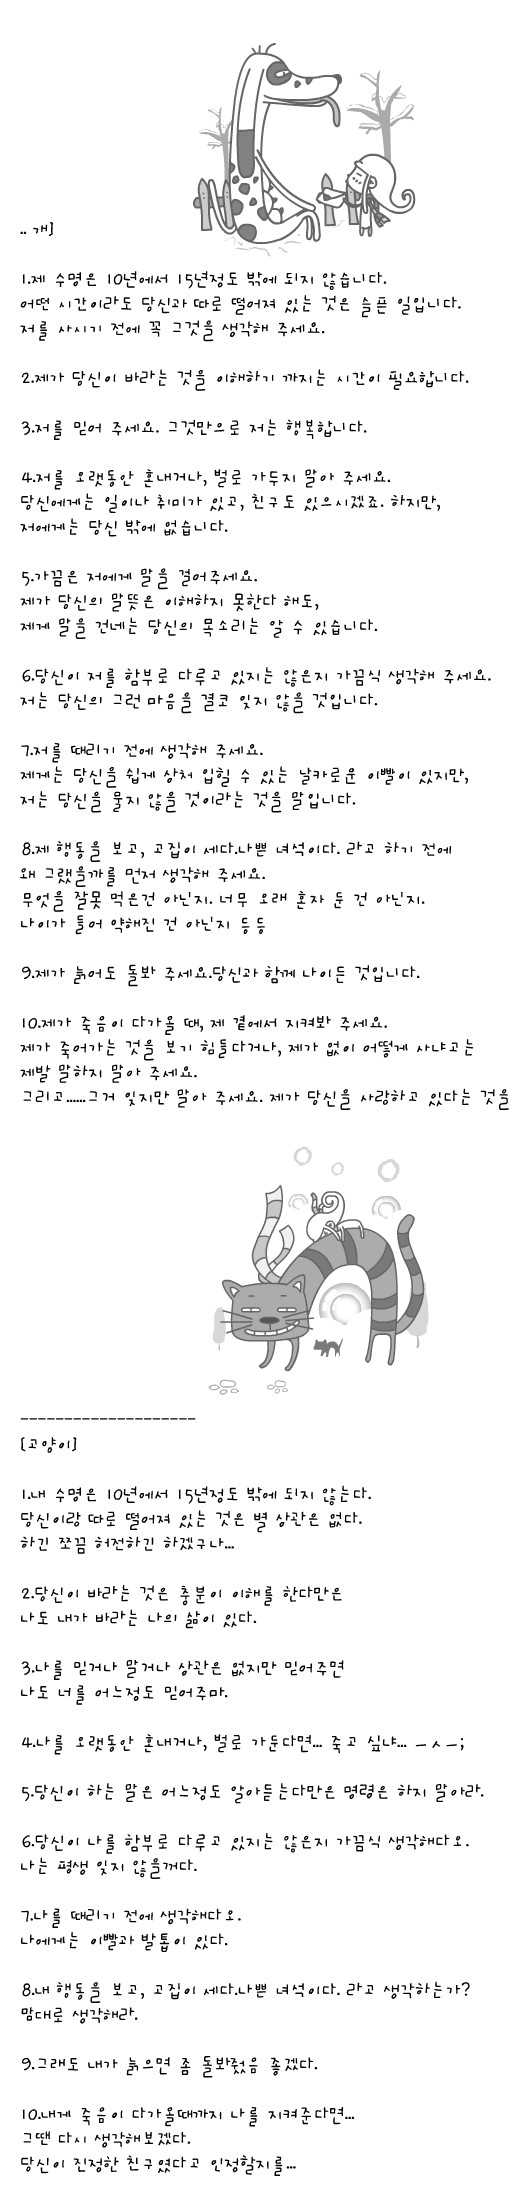 .. 개]
1.제 수명은 10년에서 15년정도 밖에 되지 않습니다.
어떤 시간이라도 당신과 따로 떨어져 있는 것은 슬픈 일입니다.
저를 사시기 전에 꼭 그것을 생각해 주세요.
2.제가 당신이 바라는 것을 이해하기 까지는 시간이 필요합니다.
3.저를 믿어 주세요. 그것만으로 저는 행복합니다.
4.저를 오랫동안 혼내거나, 벌로 가두지 말아 주세요.
당신에게는 일이나 취미가 있고, 친구도 있으시겠죠. 하지만,
저에게는 당신 밖에 없습니다.
5.가끔은 저에게 말을 걸어주세요.
제가 당신의 말뜻은 이해하지 못한다 해도,
제게 말을 건네는 당신의 목소리는 알 수 있습니다.
6.당신이 저를 함부로 다루고 있지는 않은지 가끔식 생각해 주세요.
저는 당신의 그런 마음을 결코 잊지 않을 것입니다.
7.저를 때리기 전에 생각해 주세요.
제게는 당신을 쉽게 상처 입힐 수 있는 날카로운 이빨이 있지만,
저는 당신을 물지 않을 것이라는 것을 말입니다.
8.제 행동을 보고, 고집이 세다.나쁜 녀석이다. 라고 하기 전에
왜 그랬을까를 먼저 생각해 주세요.
무엇을 잘못 먹은건 아닌지. 너무 오래 혼자 둔 건 아닌지.
나이가 들어 약해진 건 아닌지 등등
9.제가 늙어도 돌봐 주세요.당신과 함께 나이든 것입니다.
10.제가 죽음이 다가올 때, 제 곁에서 지켜봐 주세요.
제가 죽어가는 것을 보기 힘들다거나, 제가 없이 어떻게 사냐고는
제발 말하지 말아 주세요.
그리고......그거 잊지만 말아 주세요. 제가 당신을 사랑하고 있다는 것을
--------------------
[고양이]
1.내 수명은 10년에서 15년정도 밖에 되지 않는다.
당신이랑 따로 떨어져 있는 것은 별 상관은 없다.
하긴 쪼끔 허전하긴 하겠구나...
2.당신이 바라는 것은 충분이 이해를 한다만은
나도 내가 바라는 나의 삶이 있다.
3.나를 믿거나 말거나 상관은 없지만 믿어주면
나도 너를 어느정도 믿어주마.
4.나를 오랫동안 혼내거나, 벌로 가둔다면... 죽고 싶냐... ㅡㅅㅡ;
5.당신이 하는 말은 어느정도 알아듣는다만은 명령은 하지 말아라.
6.당신이 나를 함부로 다루고 있지는 않은지 가끔식 생각해다오.
나는 평생 잊지 않을꺼다.
7.나를 때리기 전에 생각해다오.
나에게는 이빨과 발톱이 있다.
8.내 행동을 보고, 고집이 세다.나쁜 녀석이다. 라고 생각하는가?
맘대로 생각해라.
9.그래도 내가 늙으면 좀 돌봐줬음 좋겠다.
10.내게 죽음이 다가올때까지 나를 지켜준다면...
그땐 다시 생각해보겠다.
당신이 진정한 친구였다고 인정할지를...